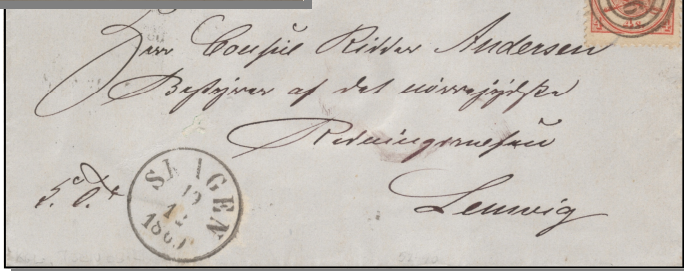 Herr Consul Ridder Andersen
Bestyrer af det nørrejydske
Redningsvæsen
Lemvig
SKAGEN
12